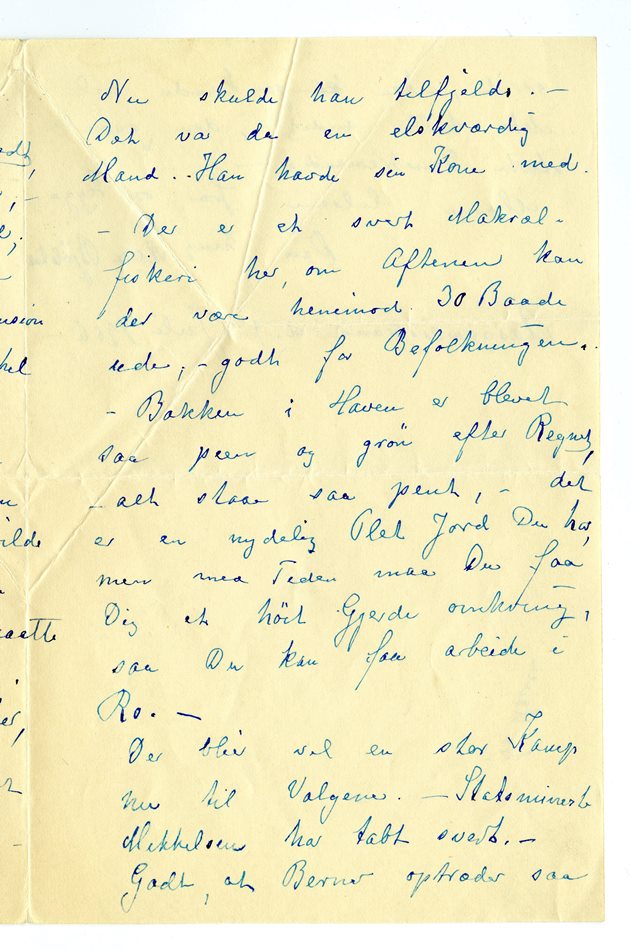 Nu skulde han tilfjelds. —
Det va da en elskværdig
Mand. Han havde sin Kone med.
— Der er et svert Makræl-
fiskeri her, om Aftenen kan
der være henimod 30 Baade
ude, — godt for Befolkningen.
— Bakken i Haven er blevet
saa peen og grön efter Regnet,
— alt staar saa pent, — det
er en nydelig Plet Jord Du har,
men med Tiden maa Du faa
Dig et höit Gjerde omkring,
saa Du kan faa arbeide i
Ro. —
Der blir vel en stor Kamp
nu til Valgene. — Statsminister
Mikkelsen har tabt svert. —
Godt, at Berner optræder saa